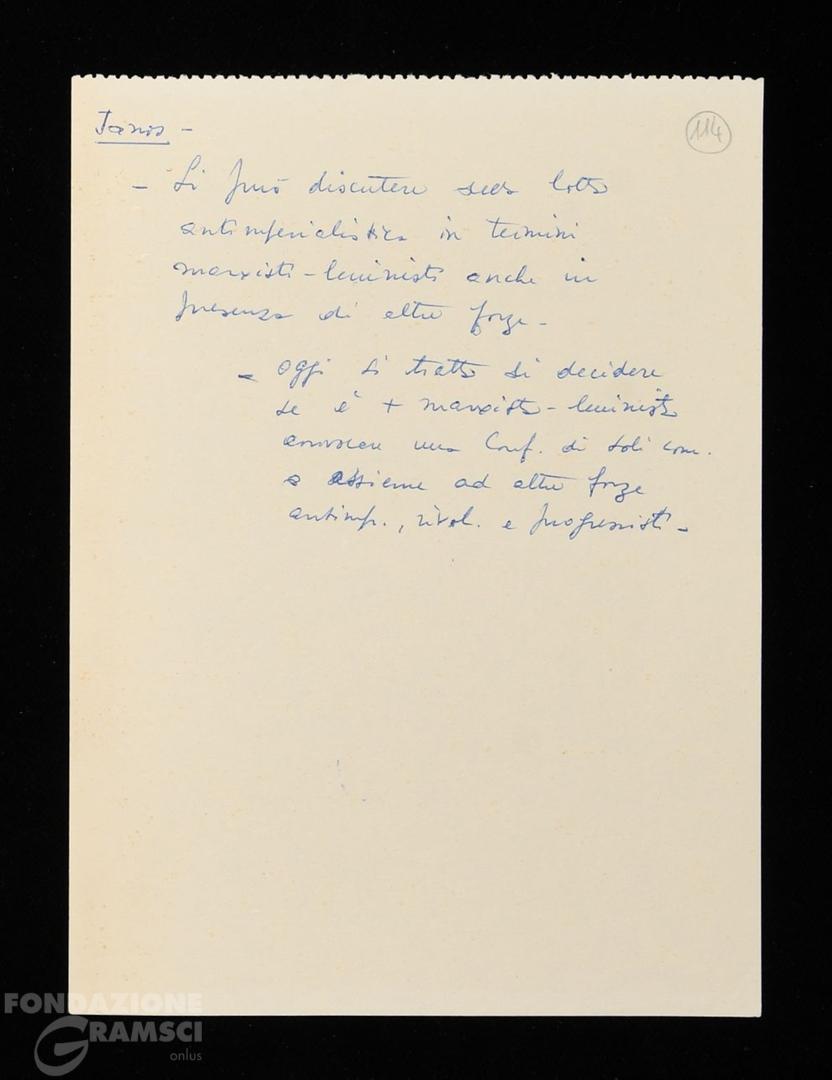 114
- Si può discutere della lotta
antimperialistica in termini
marxisti-leninisti anche in
presenza di altre forze -
- oggi si tratta di decidere
se è + marxista-leninista
convocare una Conf. di soli com.
o assieme ad altre forze
antimp., rivol. e progressisti -
FONDAZIONE
GRAMSCI
onlus